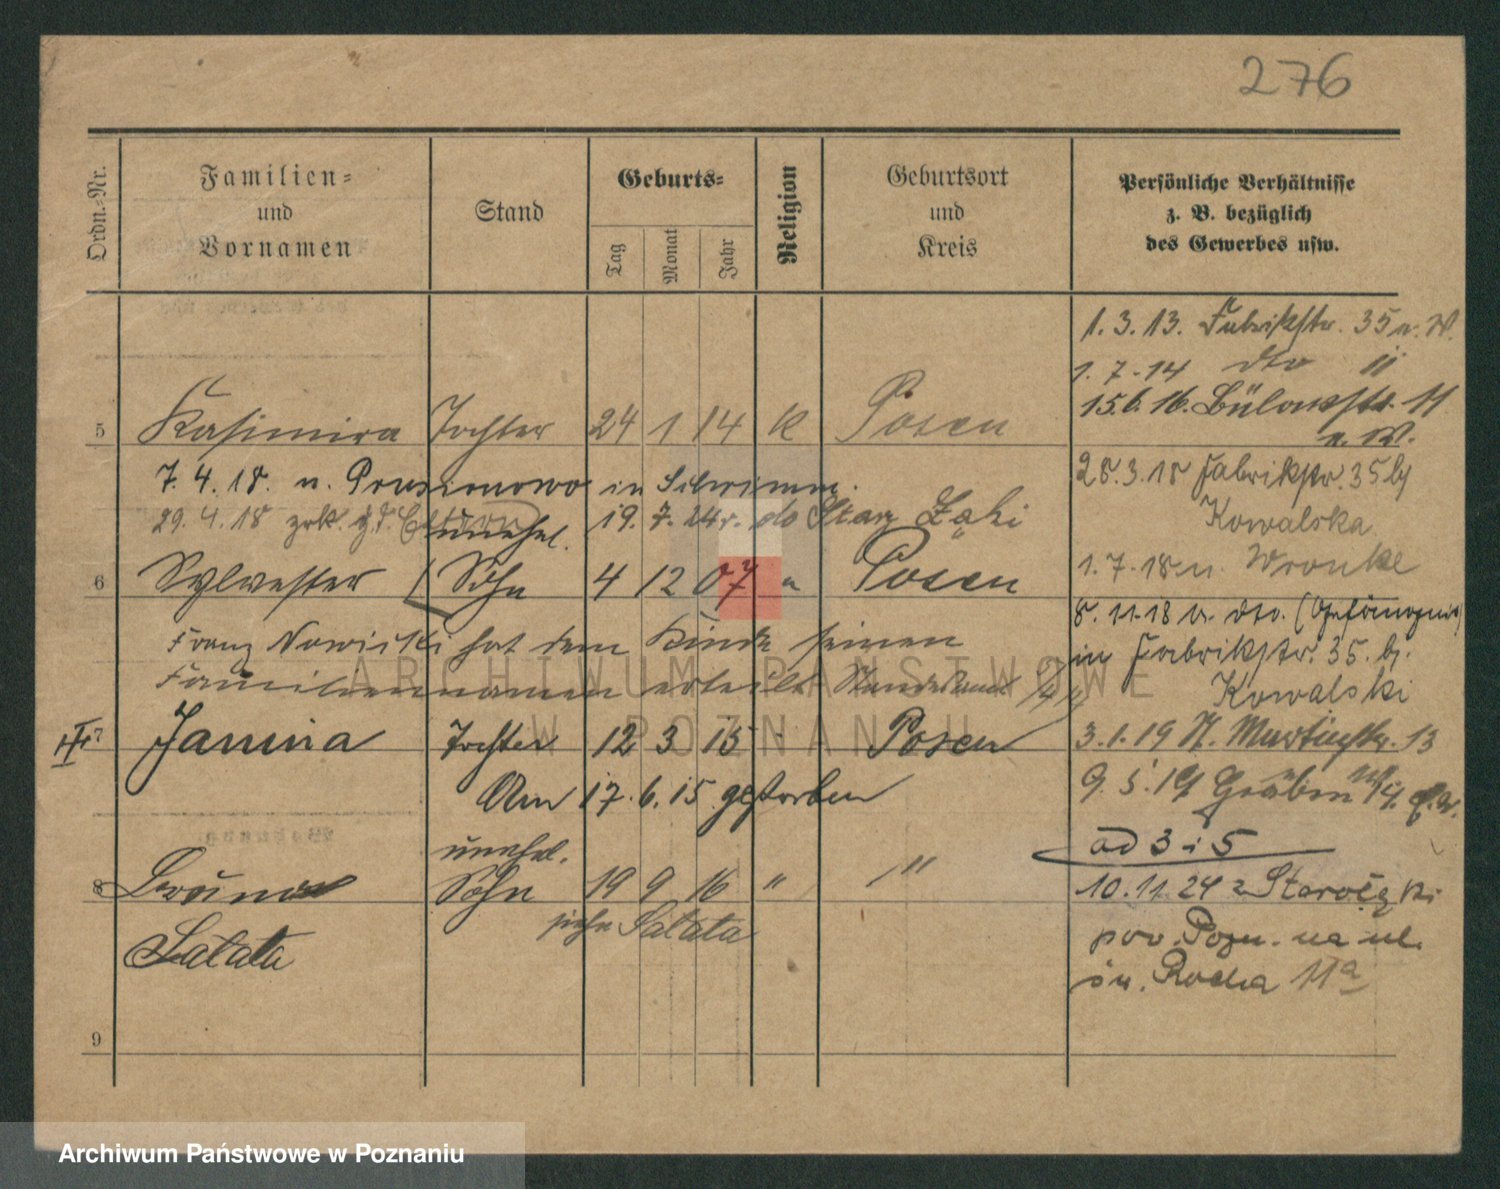 276
Ordn.-Nr.
Familien-
und
Vornamen
Stand
Geburts-
Tag
Monat
Jahr
Religion
Geburtsort
und
Kreis
Persönliche Verhältnisse
z. B. bezüglich
des Gewerbes usw.
1. 3. 13. Fabrikstr. 35 n. W.
1. 7. 14 dto II
15.6.16. Bülowstr. 11
n. W.
5 Kasimira Tochter 24 1 14 K Posen
7. 4. 18. n. in Schrimm.
28.3.18 Fabrikstr. 35 bj
29. 4. 18 zrk. 19. 7. 24 r. do Star
Kowalska
unehel.
6 Sylvester Sohn 4 12 07 " Posen
1. 7. 18 n. Wronke
8. 11. 18 v. dto.
Franz Nowicki hat dem Kinde seinen
in Fabrikstr. 35. bj.
Familiennamen erteilt Standesamt
Kowalski
7 Janina Tochter 12 3 15 " Posen
3. 1. 19 St. Martinstr. 13
Am 17. 6. 15 gestorben
9. 5. 19 Graben
ad 3 i 5
unehel.
8 Sohn 19 9 16 " "
10. 11. 24 z Starołęki
siehe Sałata
Sałata
pow. Pozn. na ul.
św. Rocha 11a
9
ARCHIWUM PAŃSTWOWE
W POZNANIU
Archiwum Państwowe w Poznaniu